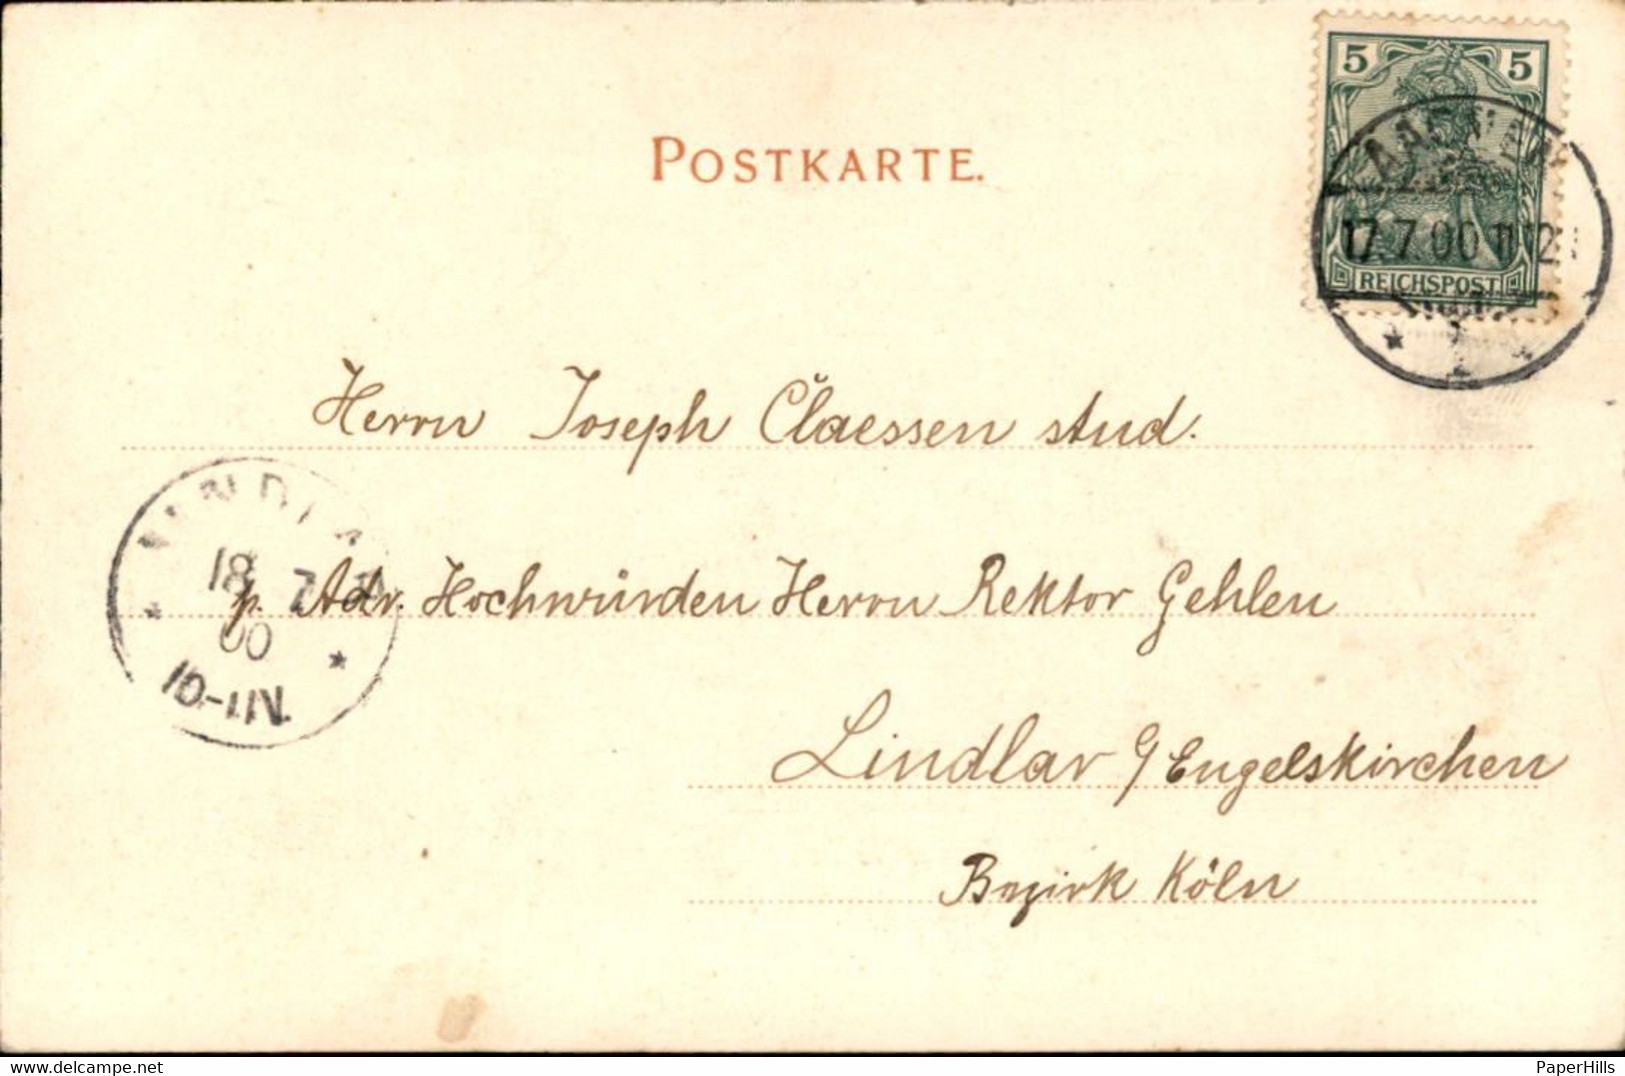 5 5
REICHSPOST
AACHEN
17.7.00 11-12
POSTKARTE.
Herrn Joseph Claessen stud.
p. Adr. Hochwürden Herrn Rektor Gehlen
Lindlar b/ Engelskirchen
Bezirk Köln
LINDLAR
18 7
00
10-11N.
PaperHills